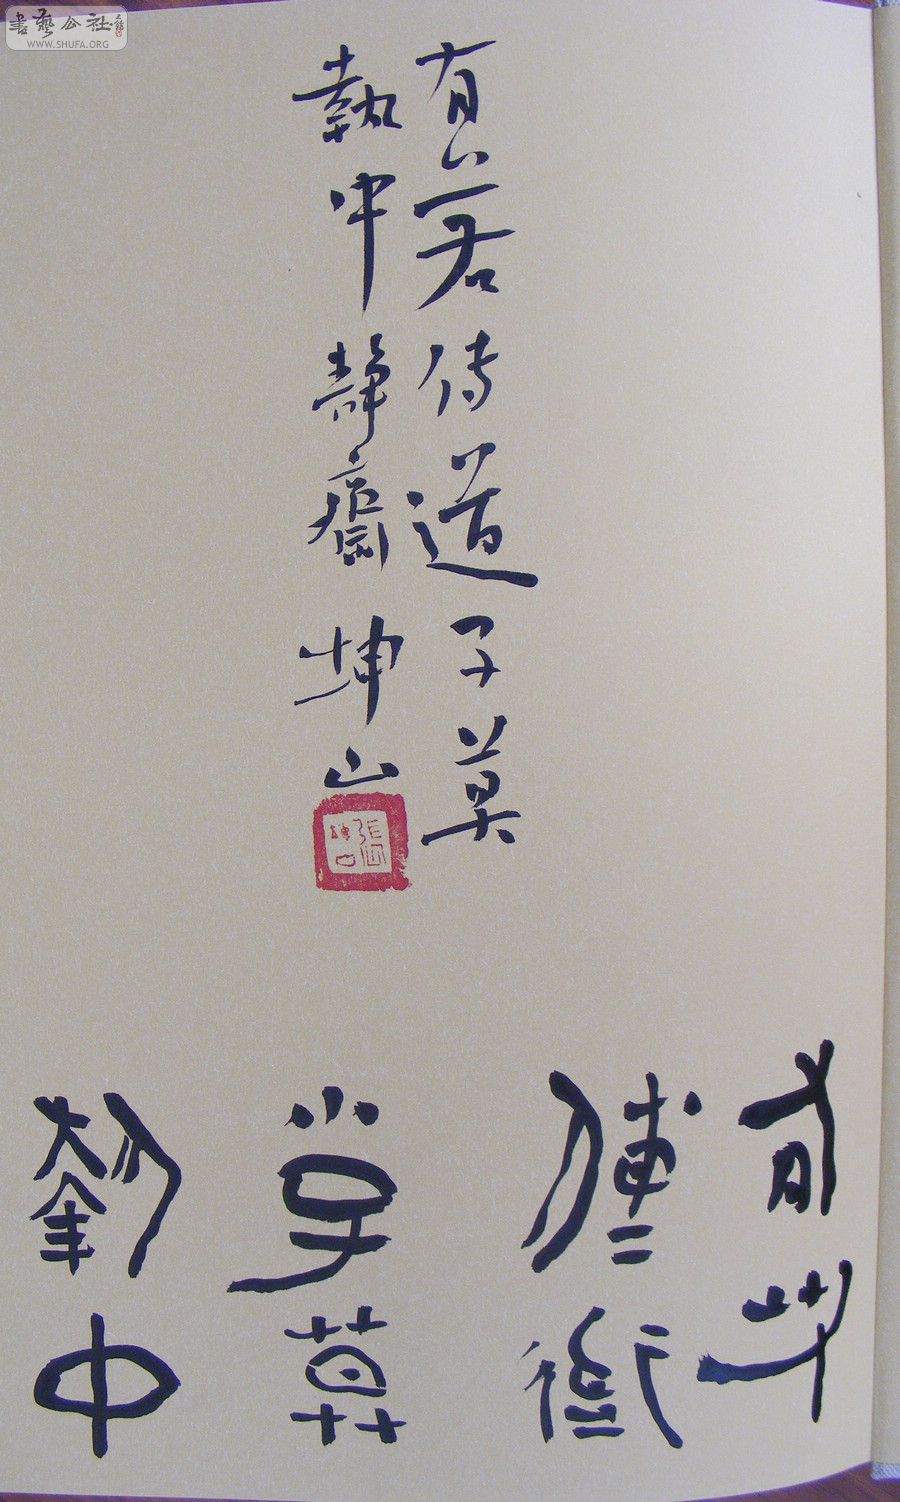 書藝公社
WWW.SHUFA.ORG
有若传道子莫
執中静齋坤山
有若
傳道
子莫
執中